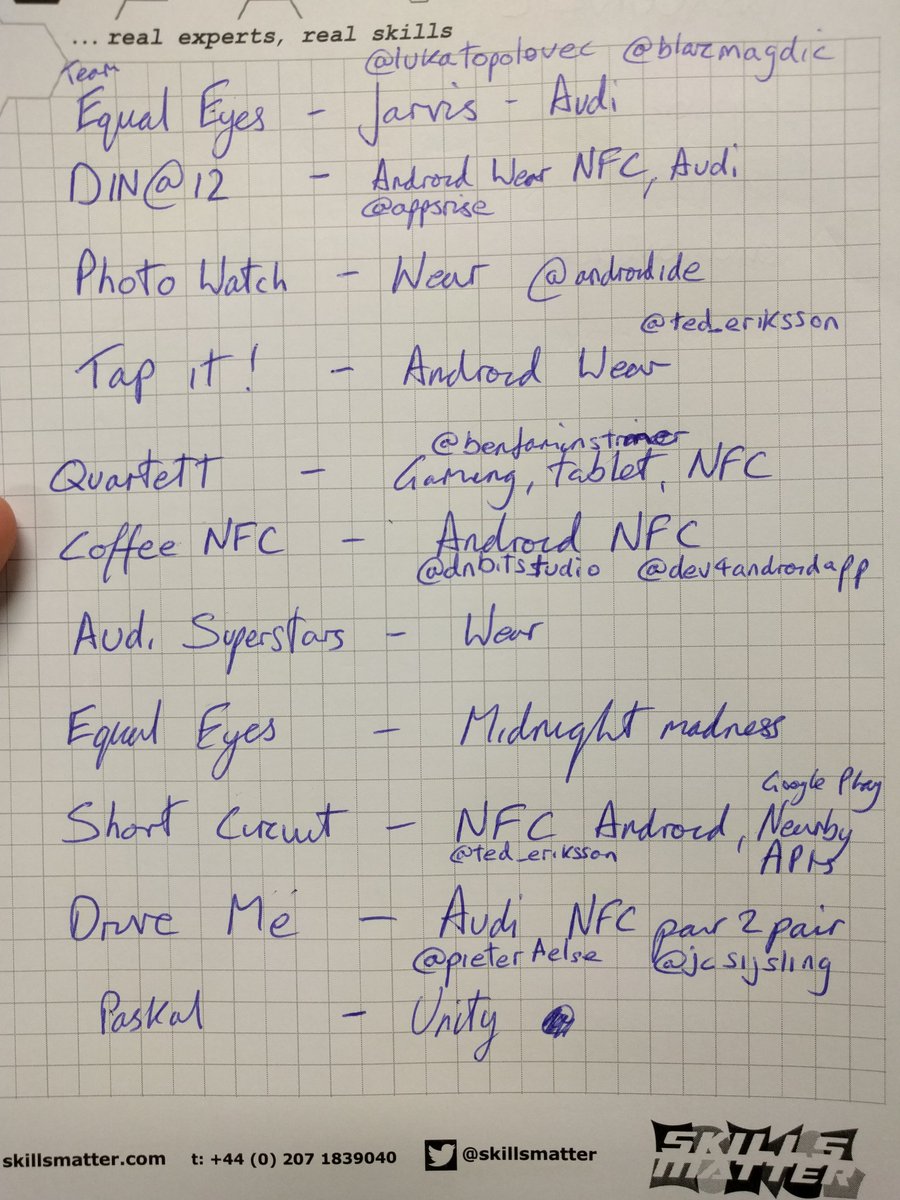 ... real experts, real skills
@lukatopolovec @blazmagdic
Team
Equal Eyes - Jarvis - Audi
DIN@12 - Android Wear NFC, Audi
@appsrise
Photo Watch - Wear @androidide
@ted_eriksson
Tap it! - Android Wear
@benjaminstrimer
Quartett - Gaming, tablet, NFC
Coffee NFC - Android NFC
@dnbitsstudio @dev4androidapp
Audi Superstars - Wear
Equal Eyes - Midnight madness
Google Play
Short Circuit - NFC Android, Nearby
@ted_eriksson APIs
Drive Me - Audi NFC pair 2 pair
@pieterAelse @jcsijsling
Paskal - Unity
skillsmatter.com t: +44 (0) 207 1839040 @skillsmatter
SKILLS
MATTER